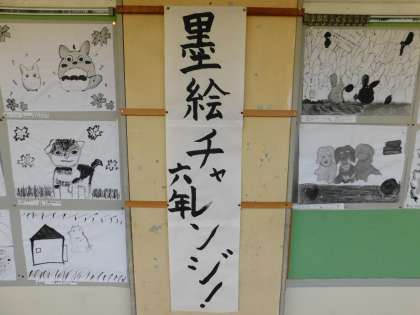 墨絵チャレンジ！
六年